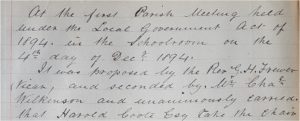 At the first Parish Meeting held
under the Local Government Act of
1894. in the Schoolroom on the
4th day of Decr. 1894.
It was proposed by the Revd. G. H. Frewer
Vicar, and seconded by Mr. Chas.
Wilkinson and unanimously carried
that Harold Coote Esq take the Chair